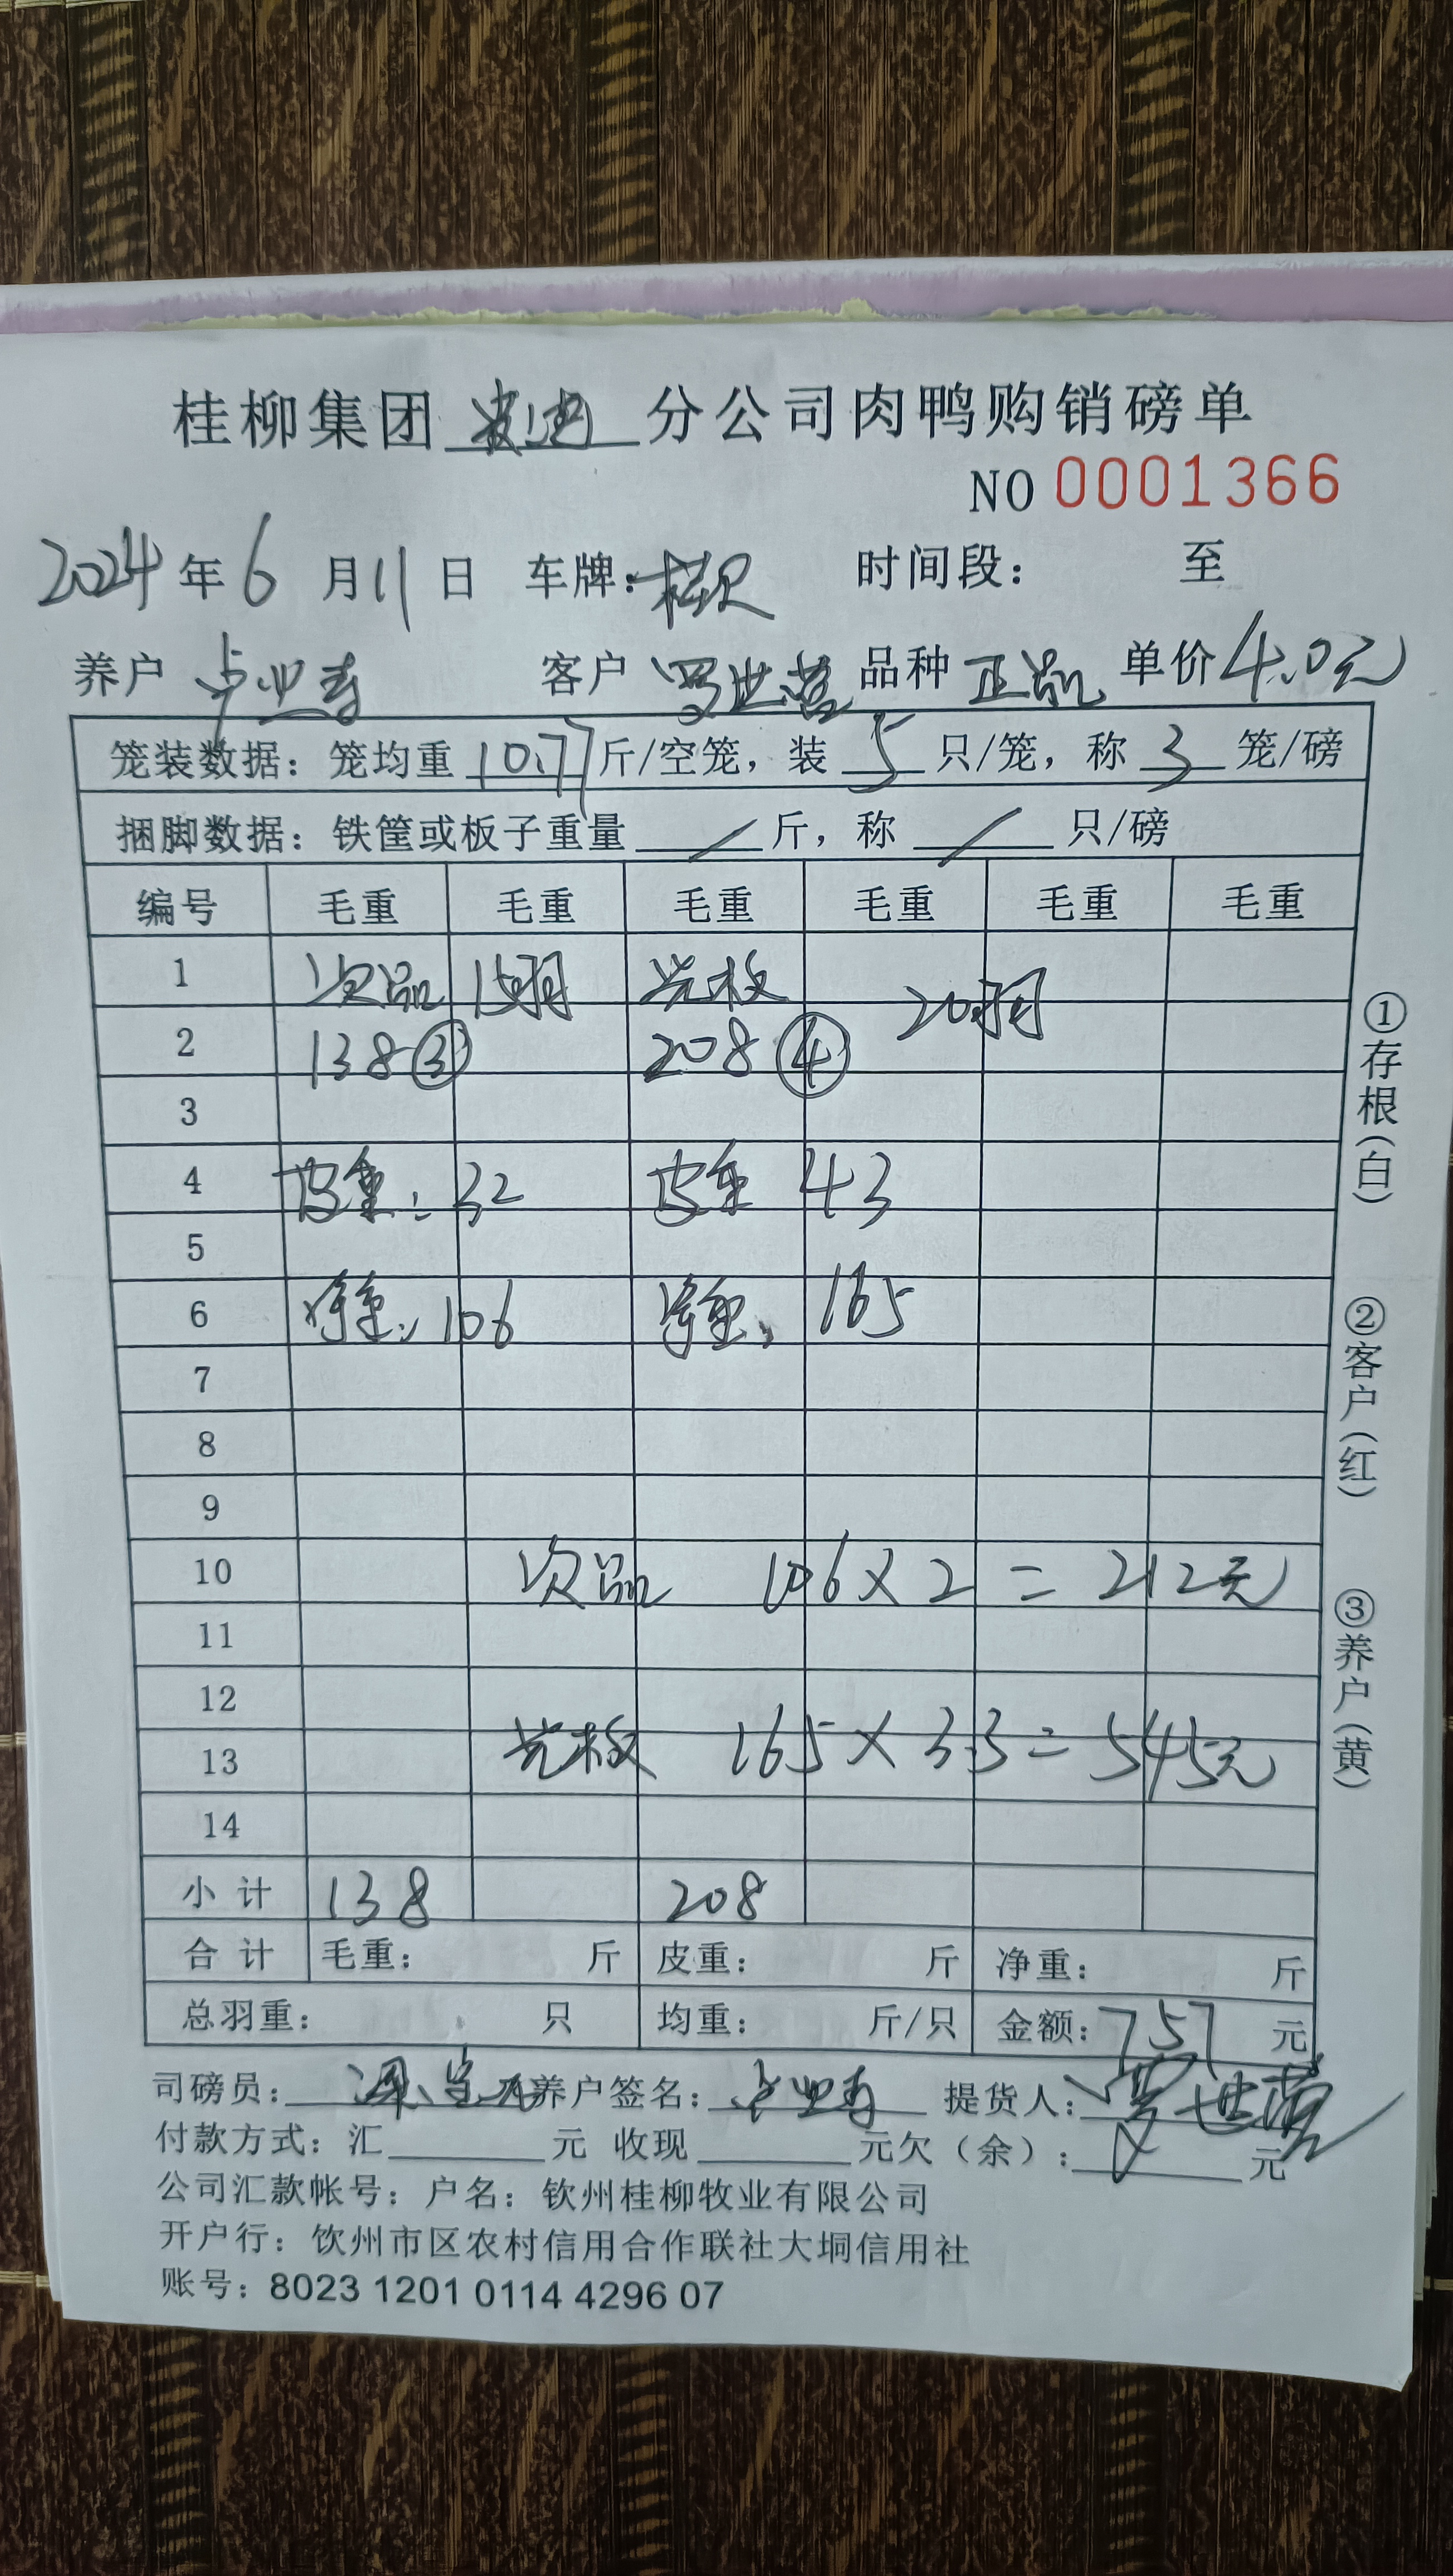 桂柳集团 分公司肉鸭购销磅单
NO 0001366
2024 年 6 月 11 日 车牌: 时间段: 至
养户 卢业寿 客户 罗世营 品种 正品 单价 4.0元
笼装数据: 笼均重 10.77 斤/空笼, 装 5 只/笼, 称 3 笼/磅
捆脚数据: 铁筐或板子重量 / 斤, 称 / 只/磅
编号 毛重 毛重 毛重 毛重 毛重 毛重
1 次品 15羽 光板 20羽
2 138 ③ 208 ④
3
4 皮重: 32 皮重 43
5
6 净重: 106 净重: 165
7
8
9
10 次品 106×2=212元
11
12
13 光板 165×3.3=545元
14
小计 138 208
合计 毛重: 斤 皮重: 斤 净重: 斤
总羽重: 只 均重: 斤/只 金额: 757 元
司磅员: 养户签名: 卢业寿 提货人: 罗世营
付款方式: 汇 元 收现 元欠(余): 元
公司汇款帐号: 户名: 钦州桂柳牧业有限公司
开户行: 钦州市区农村信用合作联社大垌信用社
账号: 8023 1201 0114 4296 07
①存根(白)
②客户(红)
③养户(黄)